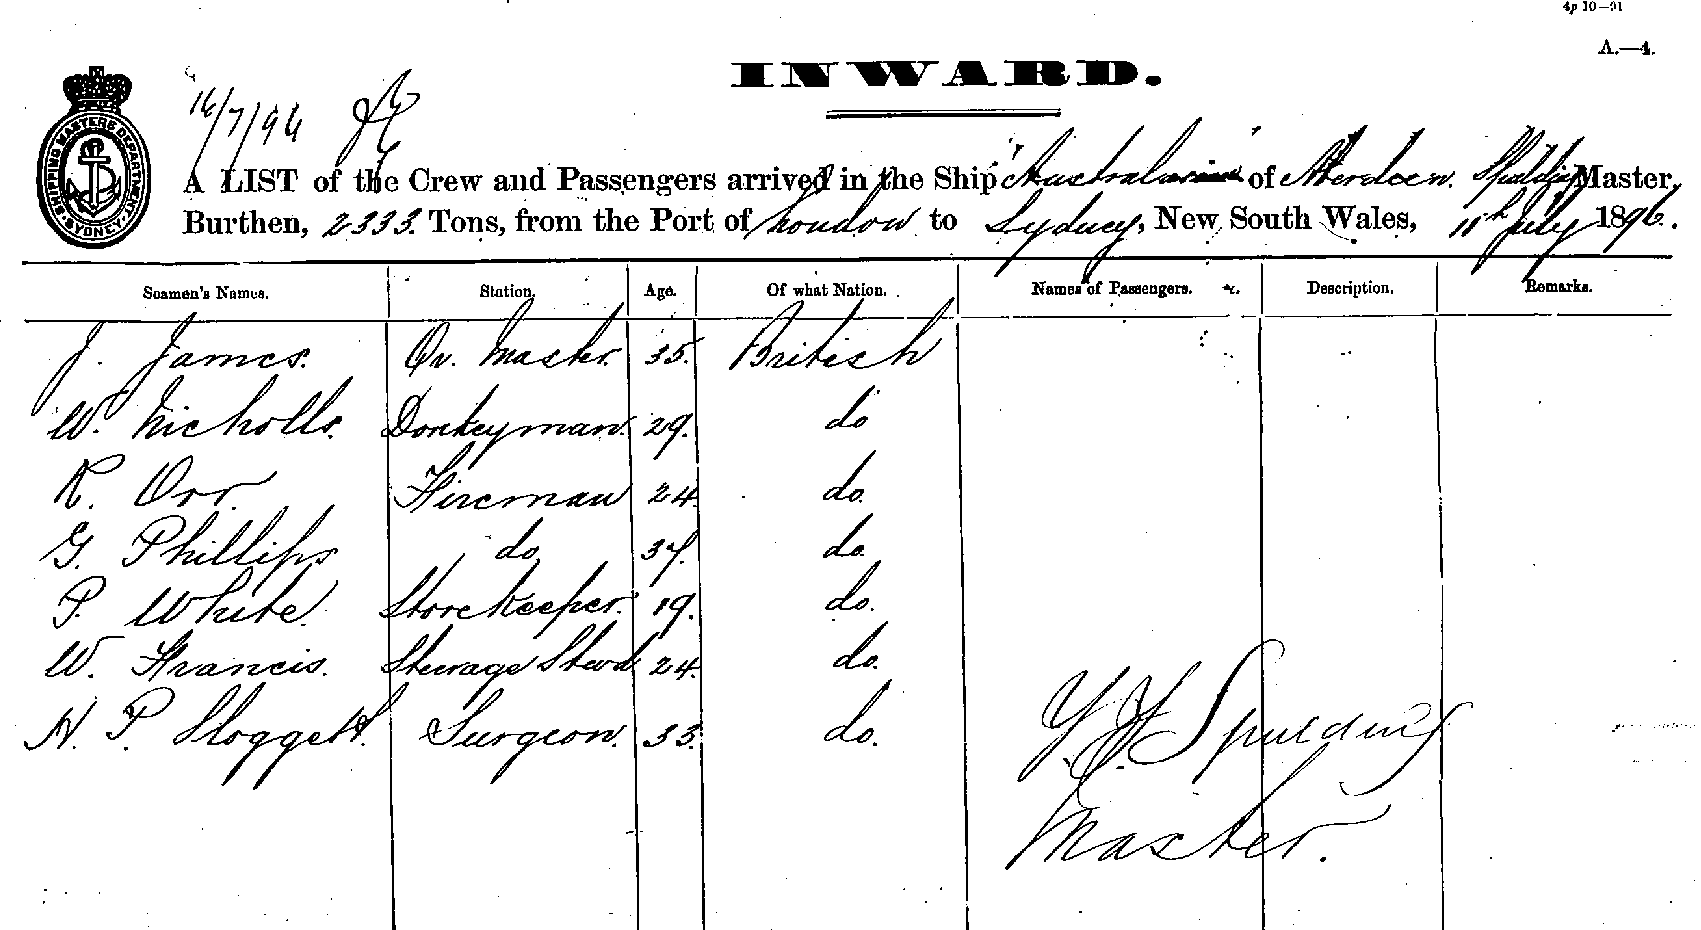 4p 10–91
A.—4.
INWARD.
SHIPPING MASTERS DEPARTMENT. SYDNEY
16/7/96
A LIST of the Crew and Passengers arrived in the Ship "Australasian" of Aberdeen. Spalding Master,
Burthen, 2333. Tons, from the Port of London to Sydney, New South Wales, 11th July 1896.
Seamen's Names. Station. Age. Of what Nation. Names of Passengers. Description. Remarks.
J. James. Qr. Master. 35. British
W. Nicholls. Donkeyman. 29. do
R. Orr. Fireman 24 do.
G. Phillips do 37. do.
P. White. Storekeeper. 19. do.
W. Francis. Steerage Stewd 24. do.
H. P. Sloggett. Surgeon. 33. do.
Spalding
Master.